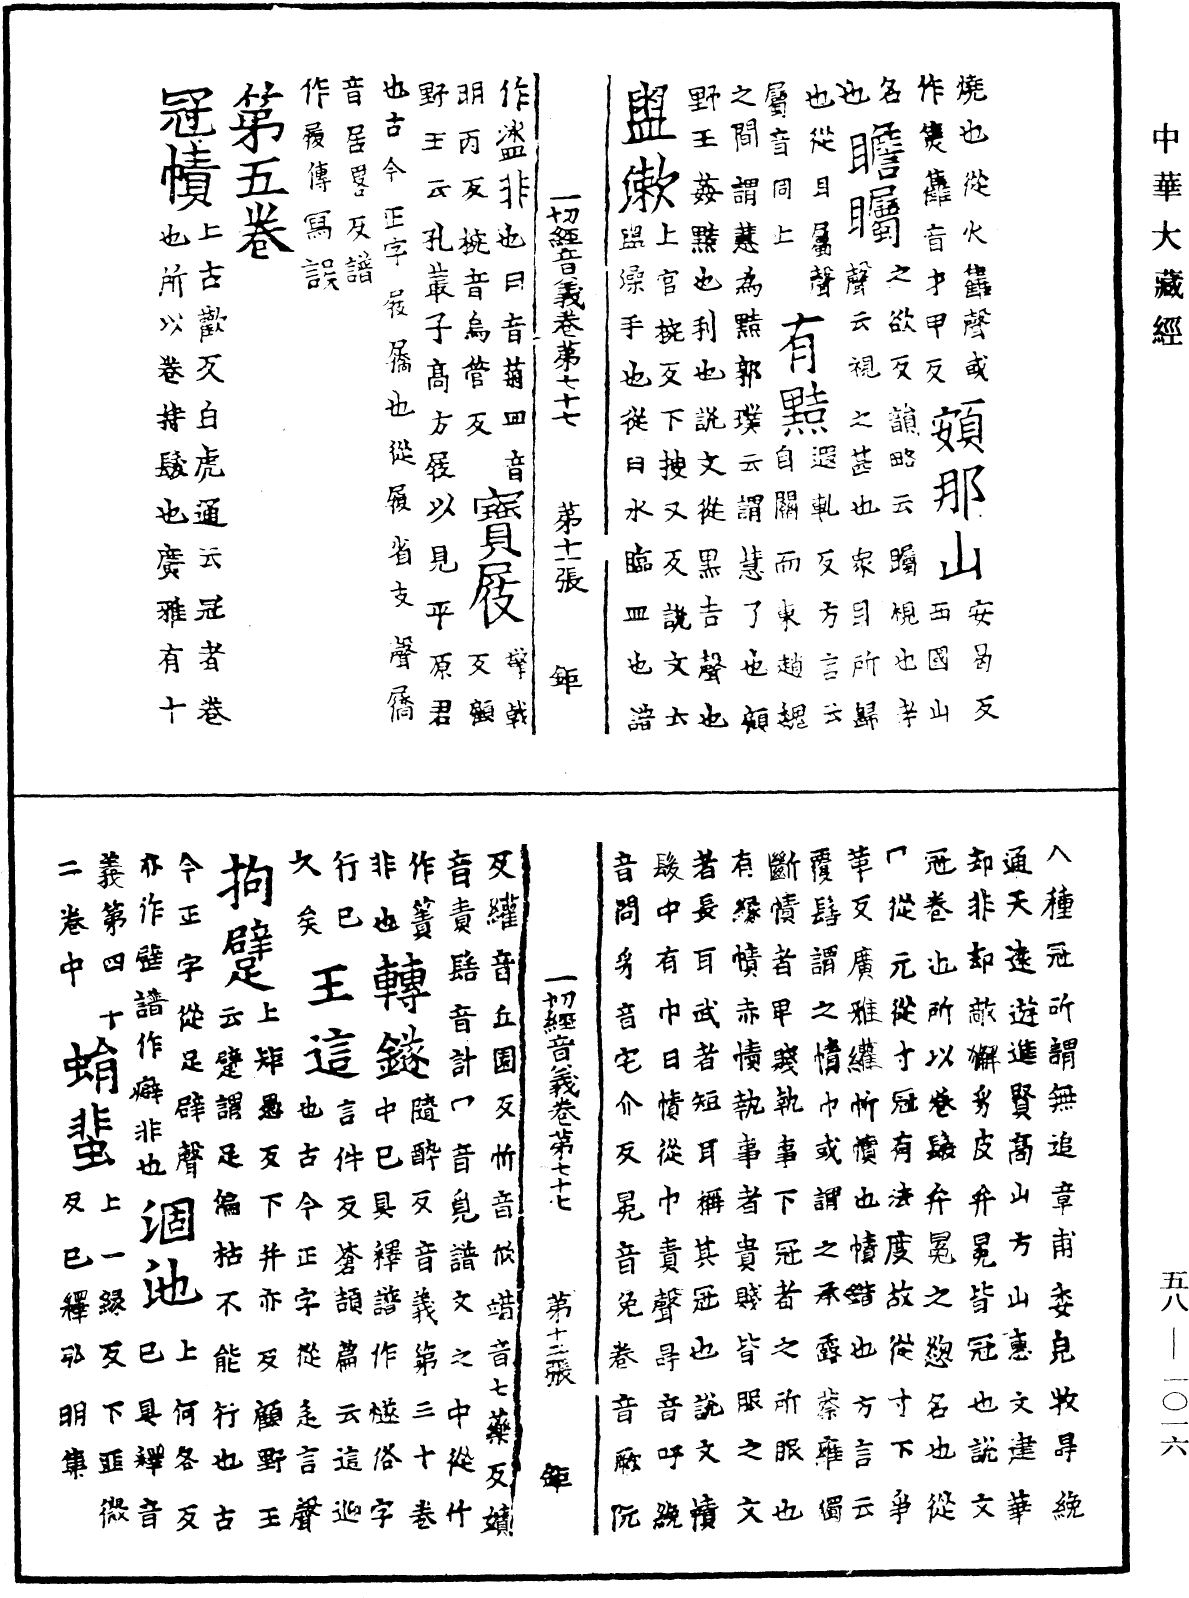 中華大藏經
燒也從火雥聲或
作𤎅雥音才甲反
頞那山
安曷反
西國山
名
也
瞻矚
之欲反韻略云矚視也考
聲云視之甚也衆目所歸
也從目屬聲
屬音同上
有黠
遐軋反方言云
自關而東趙魏
之間謂慧為黠郭璞云謂慧了也顧
野王姦黠也利也說文從黒吉聲也
盥漱
上官椀反下捜又反說文云
盥澡手也從臼水臨皿也譜
一切經音義卷第七十七 第十一張 鉅
作盜非也臼音菊皿音
明丙反椀音烏管反
寶屐
擎戟
反顧
野王云孔叢子高方屐以見平原君
也古今正字屐屩也從履省支聲屩
音居畧反譜
作履傳寫誤
第五卷
冠幘
上古歡反白虎通云冠者卷
也所以卷持髮也廣雅有十
入種冠所謂無追章甫委皃牧冔絻
通天遠遊進賢高山方山惠文建華
却非却敵獬豸皮弁冕皆冠也說文
冠卷也所以卷髮弁冕之緫名也從
冖從元從寸冠有法度故從寸下爭
革反廣雅繀㡀幘也幘䥘也方言云
覆髻謂之幘巾或謂之承露蔡雍獨
斷幘者卑賤執事下冠者之所服也
有緣幘赤幘執事者貴賤皆服之文
者長耳武者短耳稱其冠也說文幘
髮中有巾曰幘從巾責聲冔音吁絻
音問豸音宅介反冕音免卷音厥阮
一切經音義卷第七十七 第十二張 鉅
反繀音丘圓反㡀音攸䜺音七藥反嫧
音責髻音計冖音覓譜文之中從竹
作簀
非也
轉鐩
隨醉反音義第三十卷
中已具釋譜作㸂俗字
行已
久矣
王這
言件反蒼頡篇云這迎
也古今正字從辵言聲
拘躄
上矩愚反下并亦反顧野王
云躄謂足偏枯不能行也古
今正字從足辟聲
亦作壁譜作癖非也
涸池
上何各反
已具釋音
義第四十
二卷中
蜎蜚
上一緣反下匪微
反已釋卭明集
五八—一〇一六